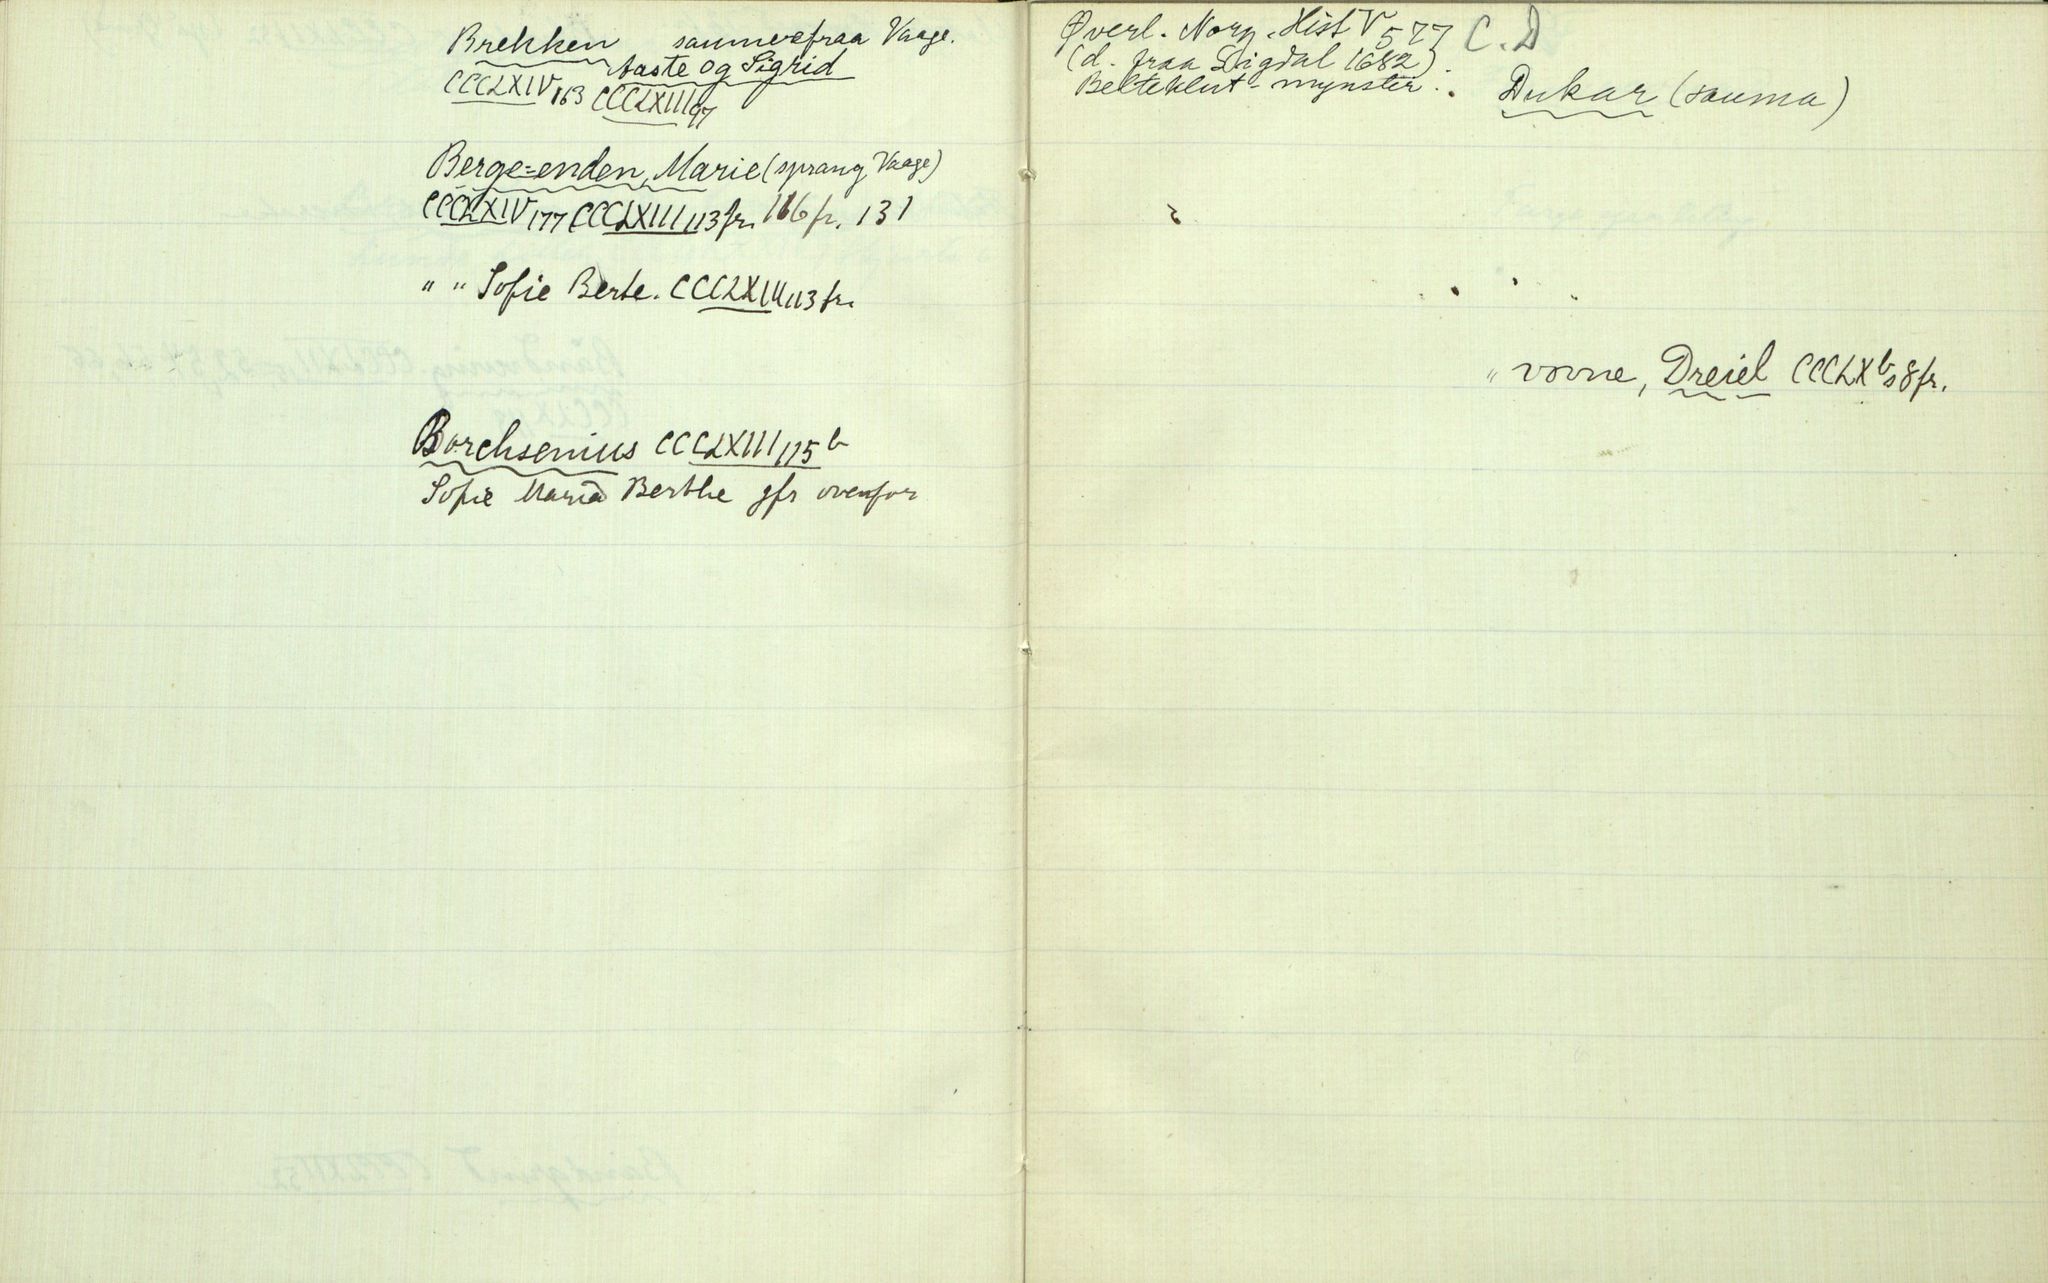 Brekken saumere fraa Vaage.
Aaste og Sigrid
CCCLXIV 163 CCCLXIII 97
Berge=enden, Marie (sprang Vaage)
CCCLXIV 177 CCCLXIII 113 fr. 116 fr. 131
" " Sofie Berte. CCCLXIII 113 fr.
Borchsenius CCCLXIII 115 b
Sofie Maria Berthe gfr ovenfor
Øverl. Norg. Hist V 577 C. D
(d. fraa Sigdal 1682).
Belteklut-mynster.
Dukar (sauma)
" vovne, Dreiel CCCLX b s 8 fr.